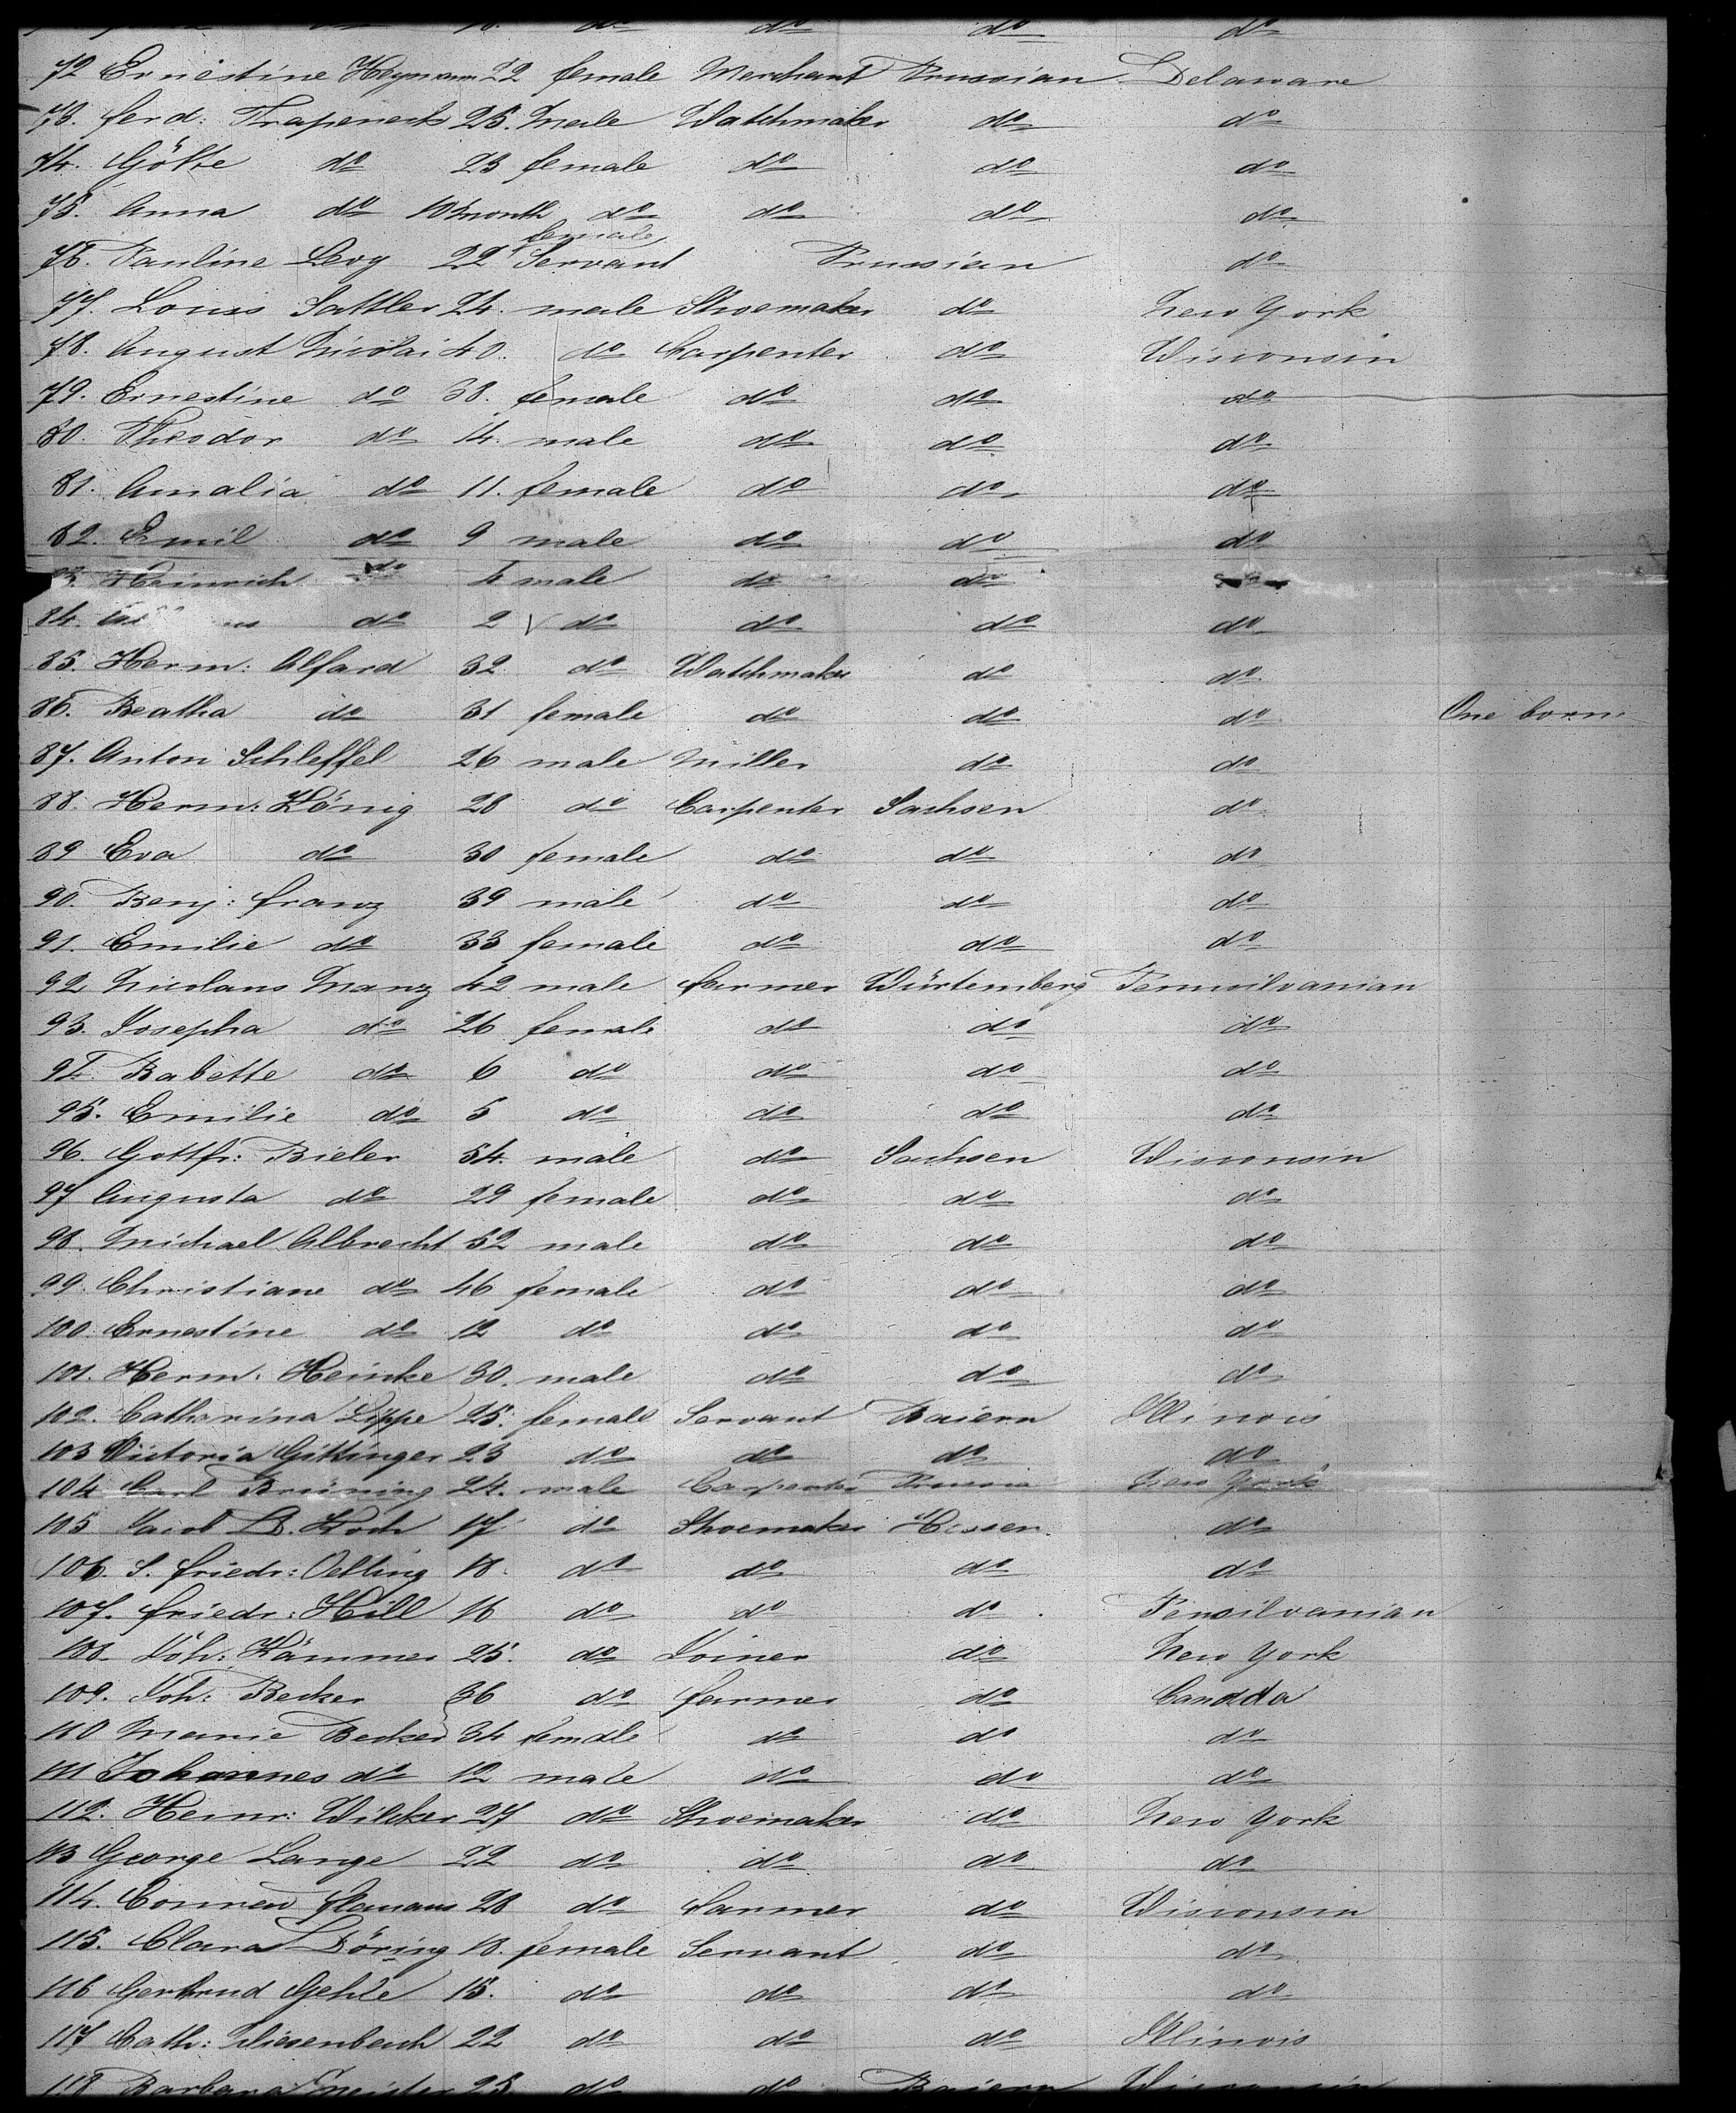 do do do do
72 Ernestine Heymann 22 female Merchant Prussian Delaware
73. Ferd: 25. Male Watchmaker do do
74. Götte do 23 female do do do
75. Anna do 10 month do do do do
female
76. Pauline Levy 22 Servant Prussian do
77. Louis Sattler 24. male Shoemaker do New York
78. August Nicolai 40. do Carpenter do Wisconsin
79. Ernestine do 38. female do do do
80. Theodor do 14. male do do do
81. Amalia do 11. female do do do
82. Emil do 9 male do do do
Heinrich do 4 male do do
84. do 2 do do do do
85. Herm: Alfard 32 do Watchmaker do do
86. Beatha do 31 female do do do One born.
87. Anton Schleffel 26 male Miller do do
88. Herm: König 28 do Carpenter Sachsen do
89 Eva do 30 female do do do
90. Benj: Franz 39 male do do do
91. Emilie do 33 female do do do
92 Nicolaus Manz 42 male Farmer Würtemberg Pennsilvanian
93. Josepha do 26 female do do do
94. Babette do 6 do do do do
95. Emilie do 5 do do do do
96. Gottfr: Bieler 54. male do Sachsen Wisconsin
97 Augusta do 29 female do do do
98. Michael Albrecht 52 male do do do
99. Christiane do 46 female do do do
100. Ernestine do 12 do do do do
101. Herm: Heinke 30. male do do do
102. Catharina Lippe 25. female Servant Baiern Illinois
103 Victoria Gittinger 23 do do do do
104 Carl Brüning 24. male Carpenter Prussia New York
105 Jacob D. Koch 17 do Shoemaker Hessen. do
106. S. Friedr: Oelling 18. do do do do
107. Friedr: Hill 16 do do do. Pensilvanian
108. Joh: Kämmer 25. do Joiner do New York
109. Joh: Becker 36 do Farmer do Canada
110 Marie Becker 34 female do do do
111 Johannes do 12 male do do do
112. Heinr: Wilcker 27 do Shoemaker do New York
113 George Lange 22 do do do do
114. 28 do Farmer do Wisconsin
115. Clara Döring 18. female Servant do do
116 Gertrud Gehle 15. do do do do
117 Cath: Wiesenbach 22 do do do Illinois
118 Barbara 25 do do Baiern Wisconsin